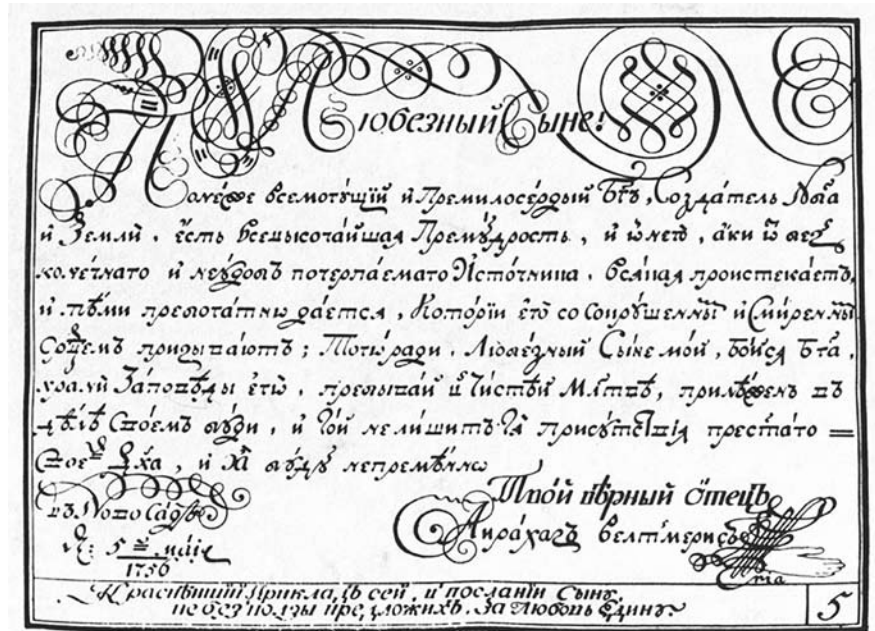 Любезный Сыне!
Понеже Всемогущїй и Премилосердый Бг҃ъ, Создатель Неба
и Земли, есть Всевысочайшая Премудрость, и
и неудобь потерпаемаго Источника, всякая проистекаетъ,
и тѣми преподается, Которїи его со Сокрушеннымъ и Смиреннымъ
Сердцемъ призываютъ; Тогѡ ради, Любезный Сыне мой, Бойся Бг҃а,
храни Заповѣды егѡ, пребывай въ Чистѣй Мл҃твѣ, прилѣженъ въ
дѣлѣ Своемъ буди, и Той не лишитъ Тя присутствїя пресвятаго =
Своегѡ Дх҃а, и буду непремѣнно
Твой вѣрный Отецъ
въ Ново Садѣ
5 маїа
1756
Краснѣйшїй Прикладъ сей, и посланїи Сыну,
не без ползы предложихъ. За Любовь Едину.
5